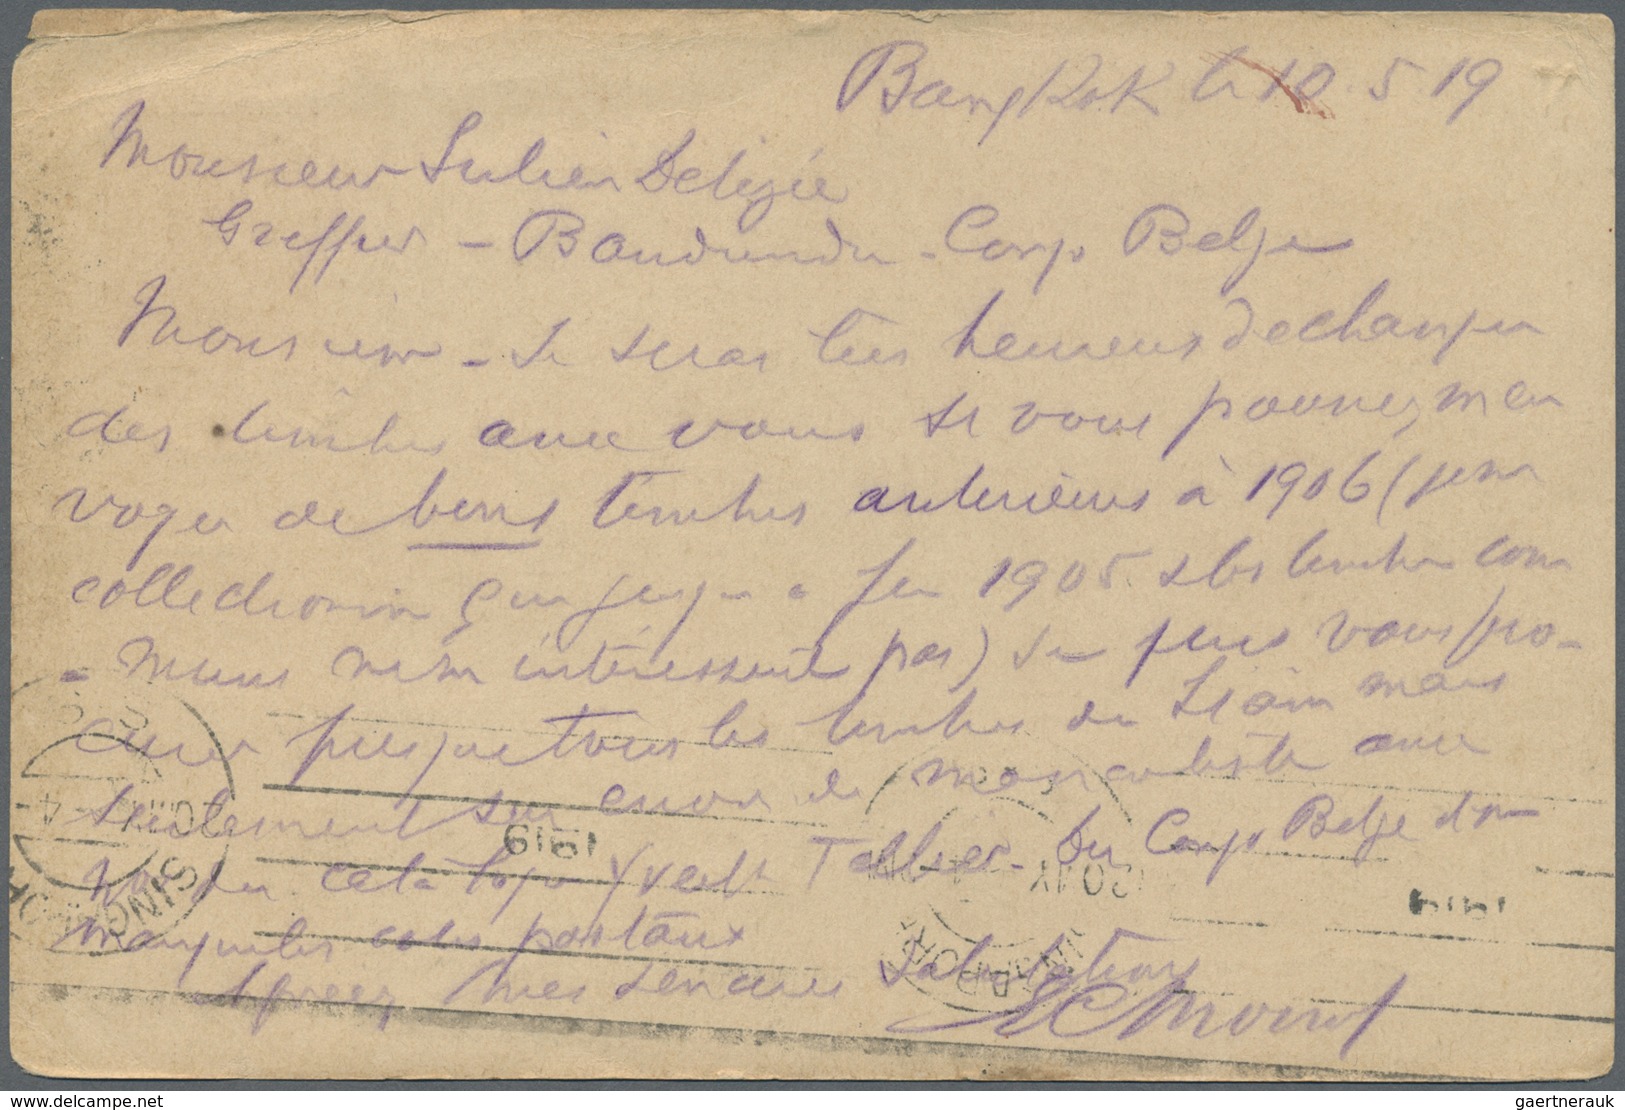 Bangkok le 10.5.19
Monsieur Julien Delizée
Greffier - Bandundu - Congo Belge
Monsieur - Je serais très heureux d'échanger
des timbres avec vous si vous pouvez m'en
voyer de bons timbres antérieurs à 1906 (je ne
collectionne que jusque 1905 les timbres com
- muns ne m'intéressent pas) Je puis vous pro-
curer presque tous les timbres de Siam mais
seulement sur envoi de mancoliste avec
Nos du catalogue Yvert Tellier - Du Congo Belge
manque les colis postaux
Agréez mes sincères salutations
SINGAPORE
1919
SINGAPORE
1919
www.delcampe.net
gaertnerauk